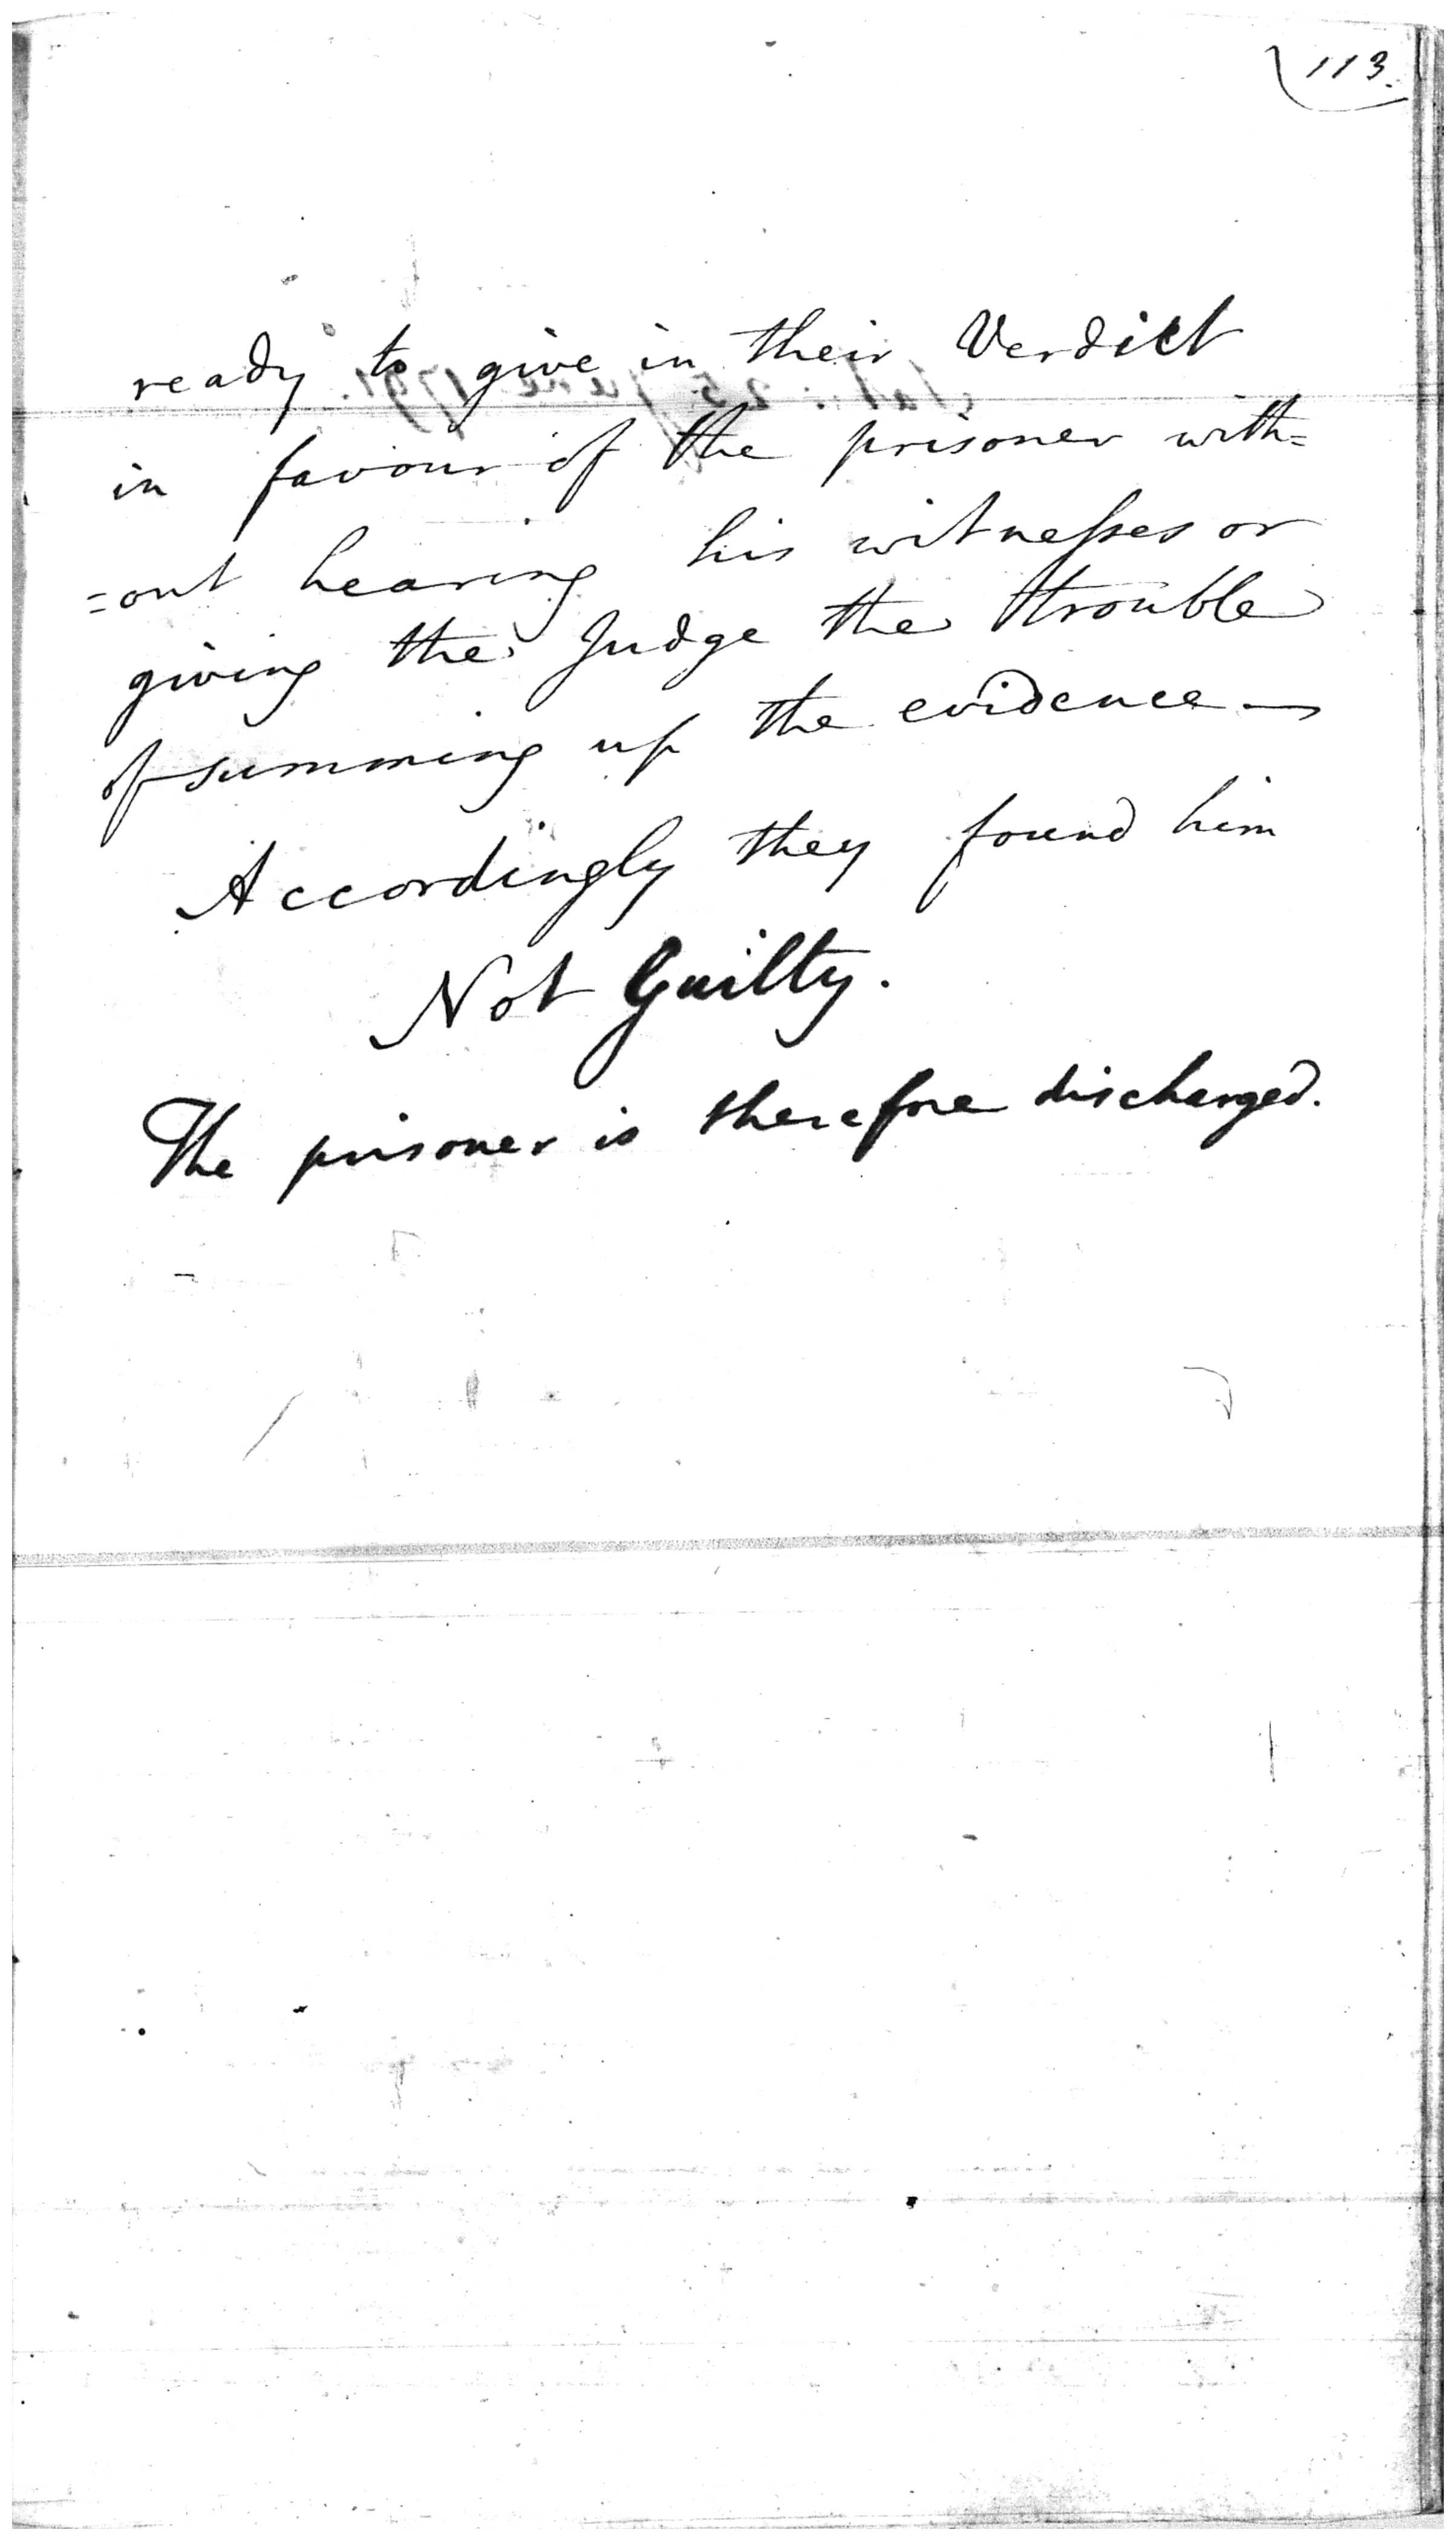 113.
ready to give in their Verdict
in favour of the prisoner with=
=out hearing his witneſses or
giving the Judge the trouble
of summing up the evidence —
Accordingly they found him
Not Guilty.
The prisoner is therefore discharged.